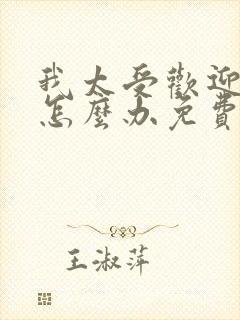 我太受歡迎
怎麼办免費
王淑萍